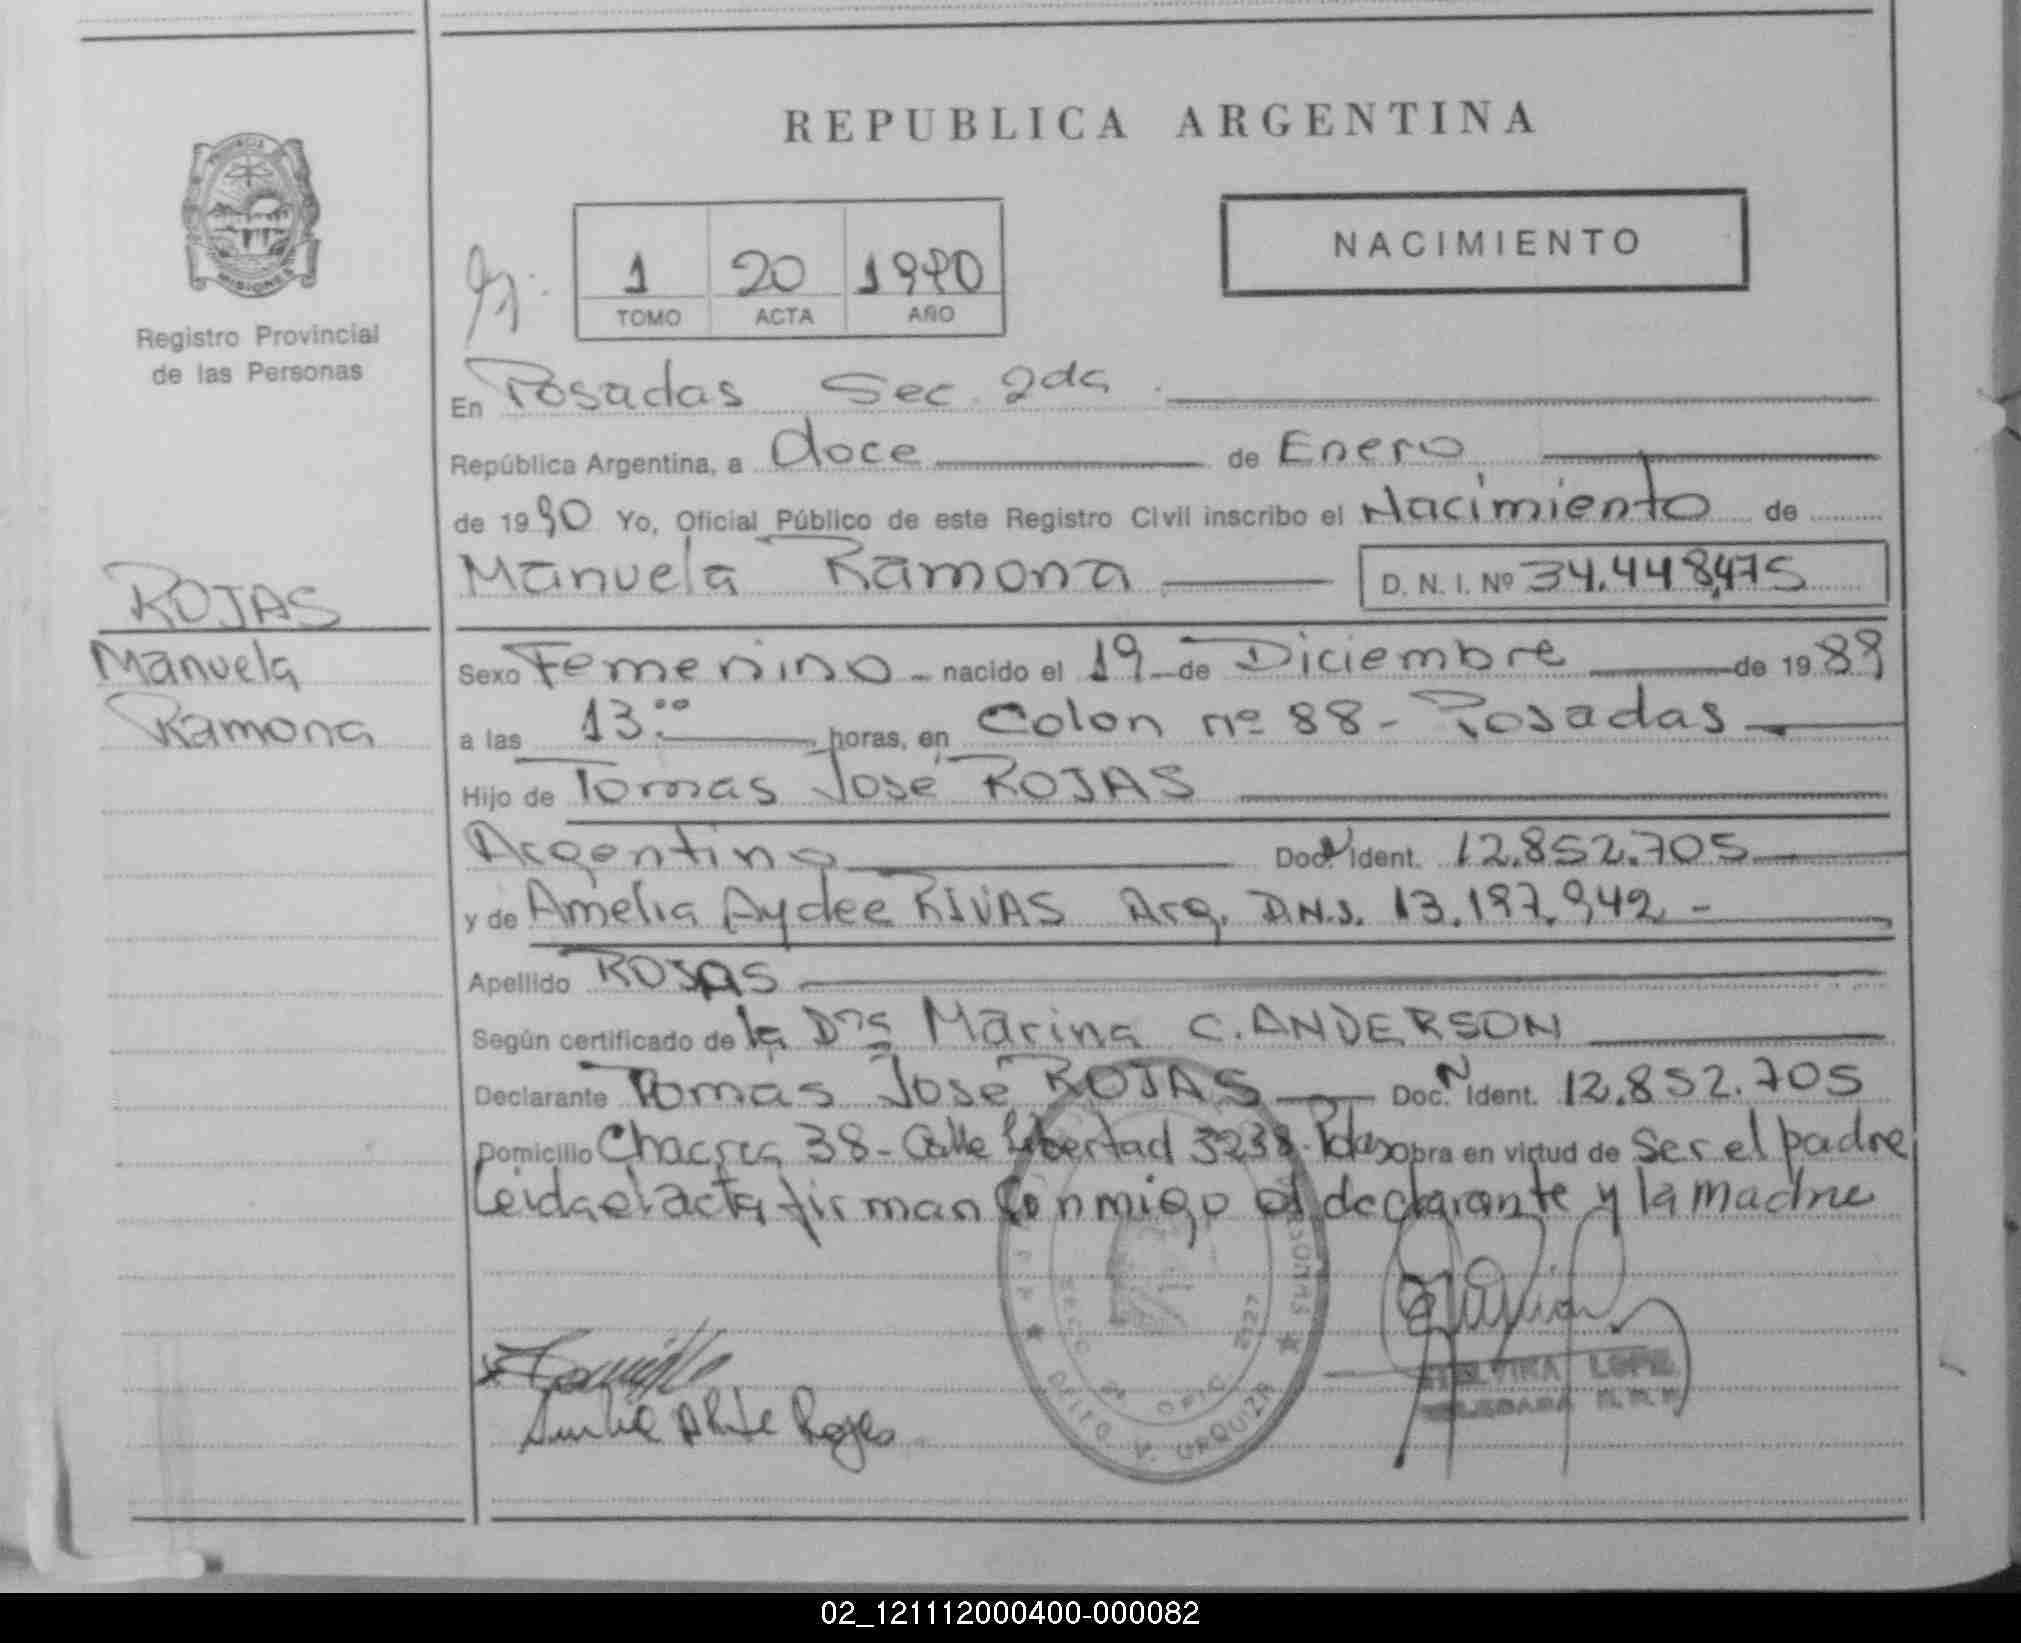 REPUBLICA ARGENTINA
PROVINCIA
MISIONES
Registro Provincial
de las Personas
NACIMIENTO
1 20 1990
TOMO ACTA AÑO
En Posadas Sec. 2da
República Argentina, a doce de Enero
de 1990 Yo, Oficial Público de este Registro Civil inscribo el Nacimiento de
Manuela Ramona D. N. I. Nº 34.448,475
ROJAS
Manuela
Ramona
Sexo Femenino - nacido el 19 de Diciembre de 1989
a las 13:00 horas, en Colon nº 88 - Posadas
Hijo de Tomas José ROJAS
Argentino Doc. N Ident. 12.852.705
y de Amelia Aydee RIVAS Arg. D.N.I. 13.197.942 -
Apellido ROJAS
Según certificado de la Dra Marina C. ANDERSON
Declarante Tomás José ROJAS Doc. N Ident. 12.852.705
Domicilio Chacra 38 - Calle Libertad 3238 - Pdas obra en virtud de ser el padre
Leida el acta firman conmigo el declarante y la madre
Rojas
PERSONAS
SECC 2ª OFIC 2127
DPTO V. URQUIZA
02_121112000400-000082